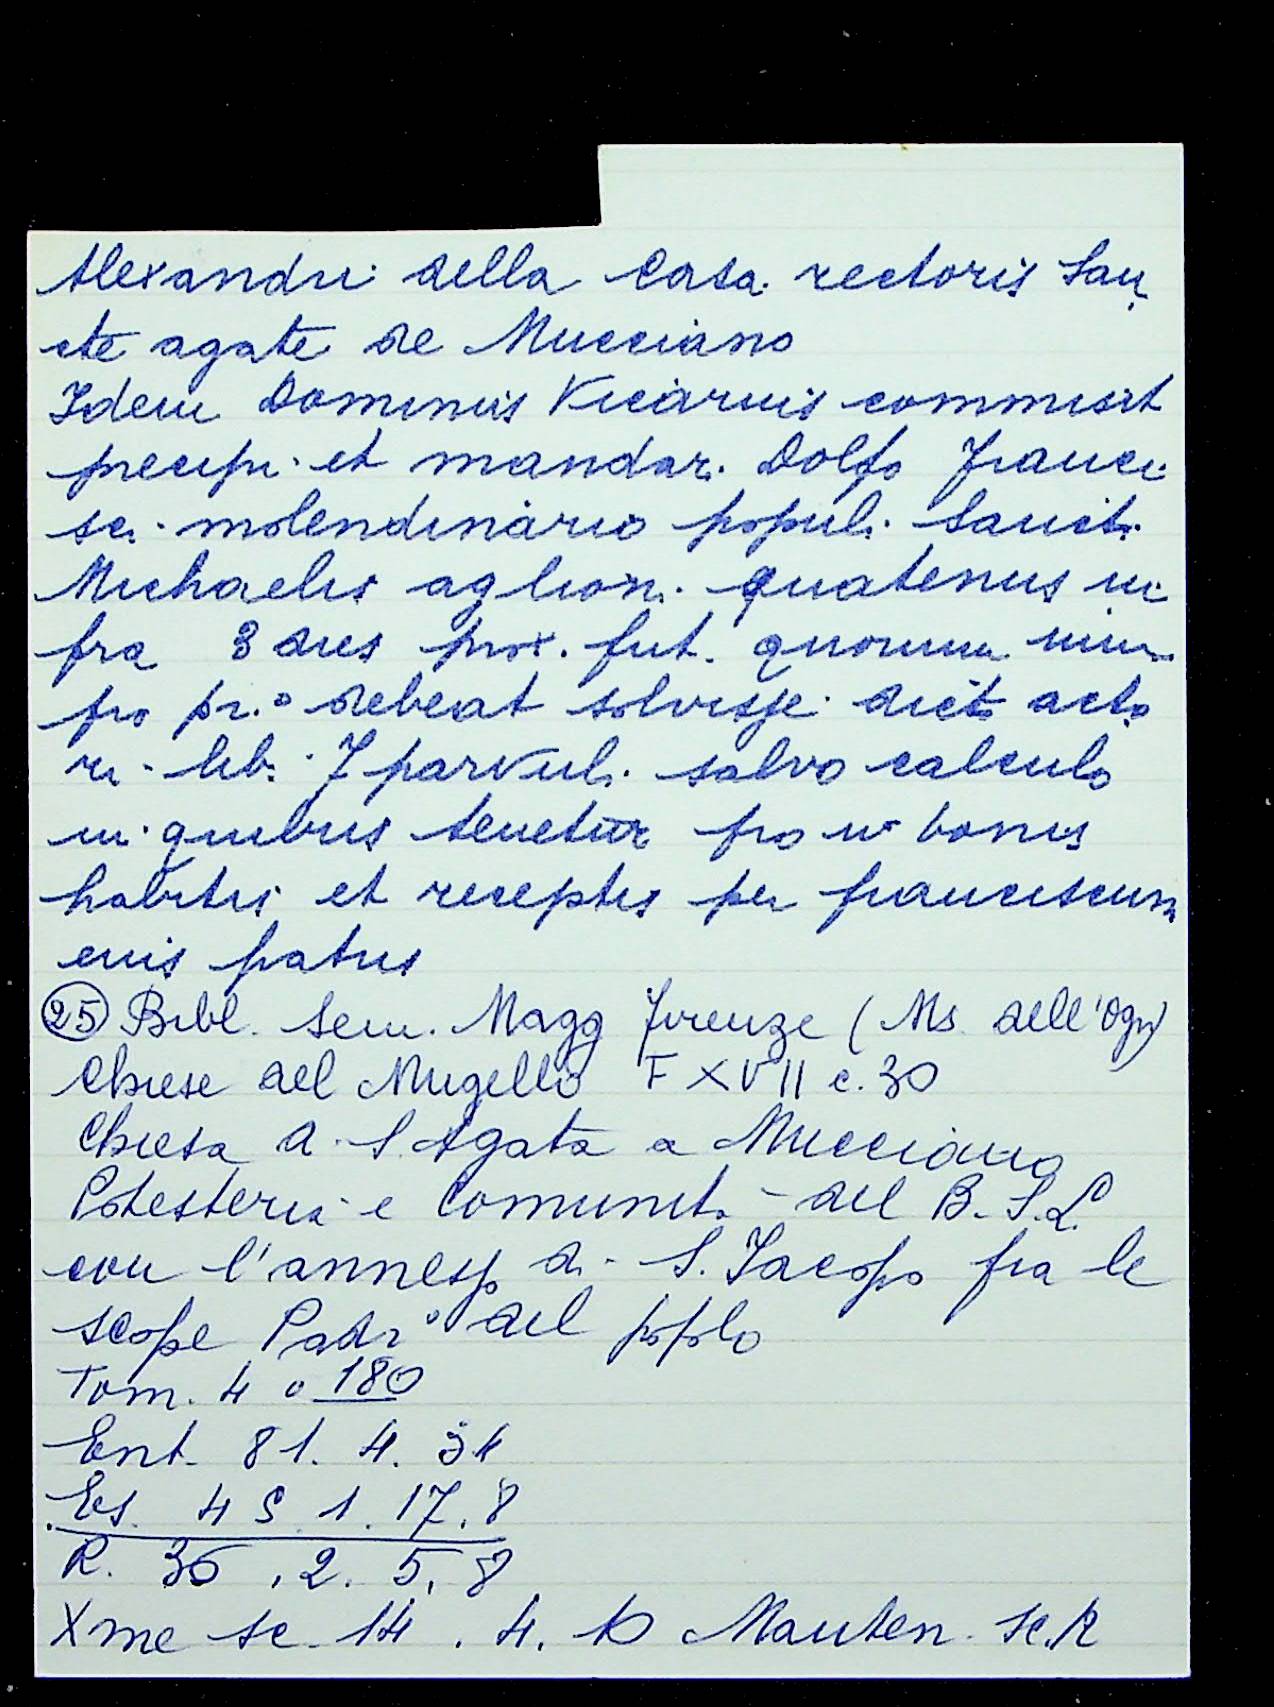 Alexandri della Casa rectoris San
cte agate de Mucciano
Idem Dominus Vicarius commisit
precipi et mandar. Dolfo Franci
sci molendinario popul. Sancti
Michaelis aglion. quatenus in
fra 3 dies prox. fut. quorum
pro pr.º debeat solvisse dicto acto
ri lib. 7 parvul. salvo calculo
in quibus tenetur pro bonis
habitis et receptis per franciscum
eius patris
25 Bibl. Sem. Magg Firenze (Ms dell'Ogn)
Chiese del Mugello F XVII c. 30
Chiesa di S. Agata a Mucciano
Potesteria e Comunit. del B. S. L.
con l'annesso di S. Jacopo fra le
scope Padr.º del popolo
Tom. 4º 180
Ent. 81. 4.
Es. 4 5 1. 17. 8
R. 36 . 2. 5. 8
Xme sc. 14 . 4. Manten. sc. R